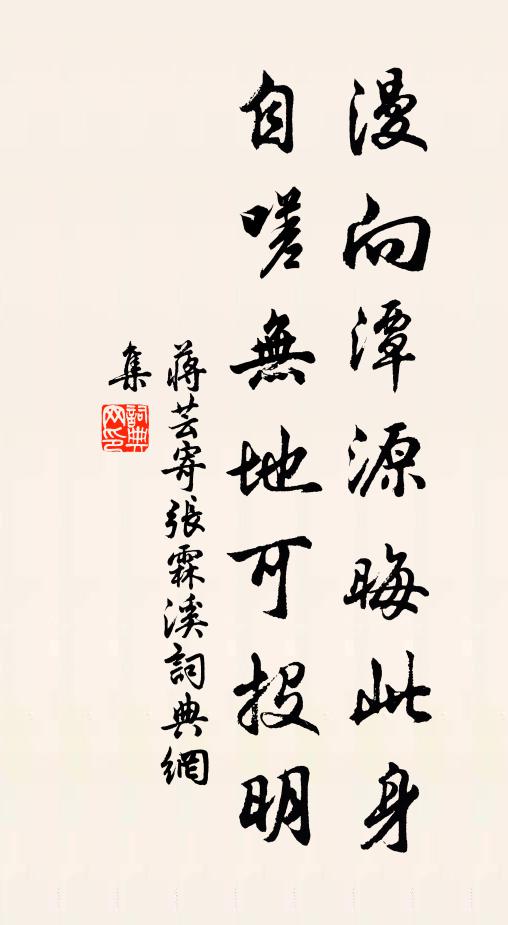 漫向潭源晦此身
自嗟無地可投明
蔣芸寄張霖溪詞典網
集
詞典
网印